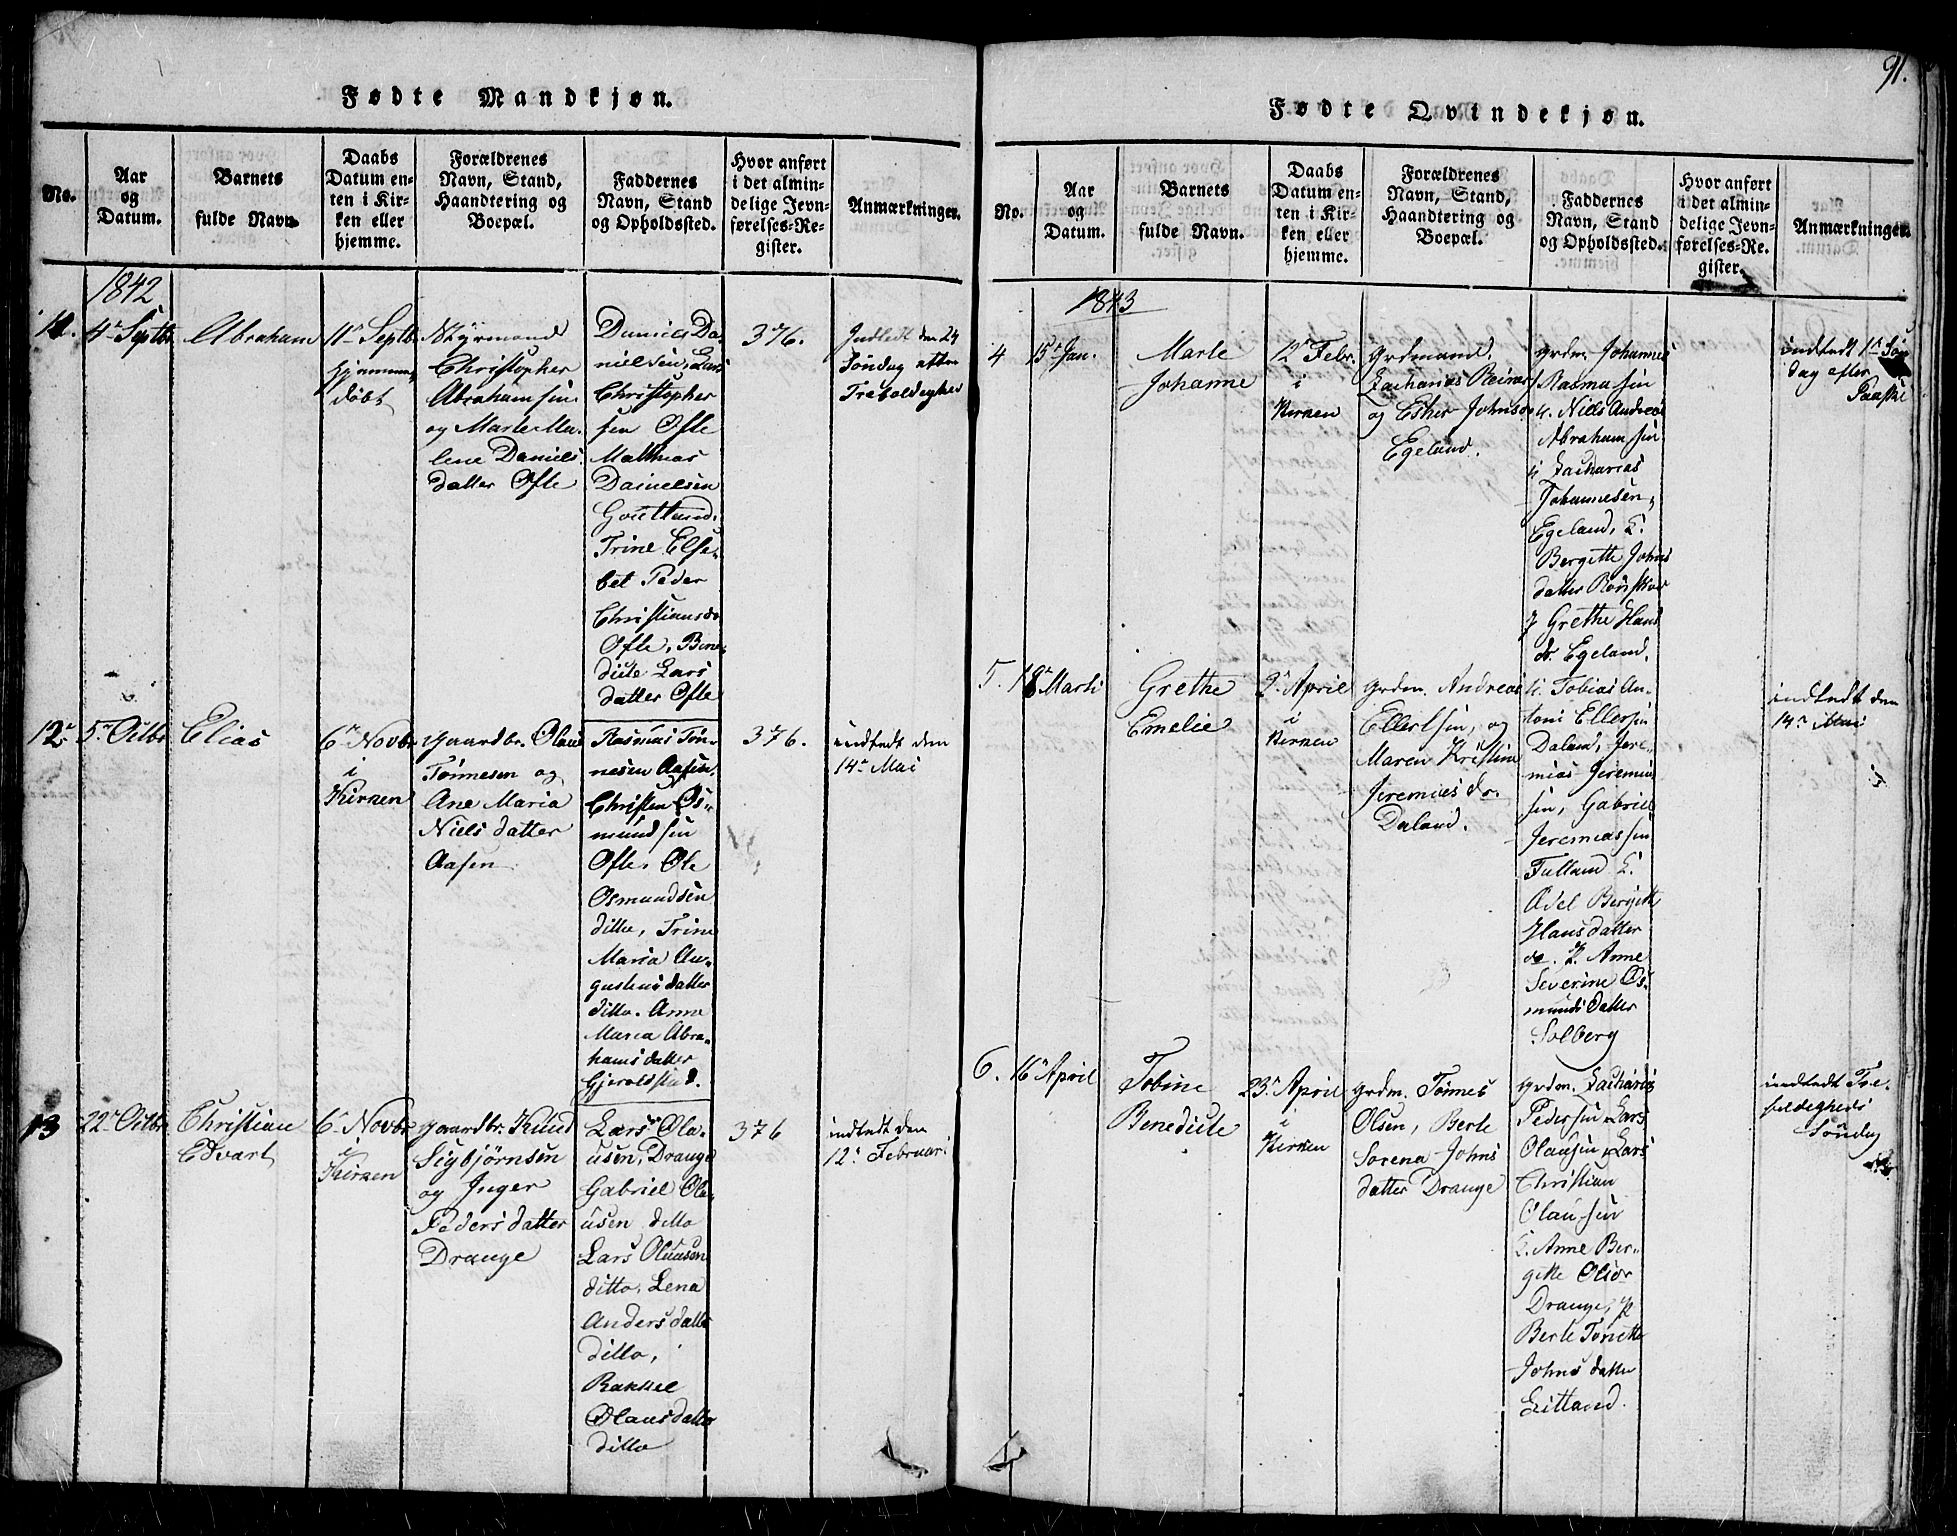 Fødte Mandkjøn.
No.
Aar
og
Datum.
Barnets
fulde Navn
Daabs
Datum en-
ten i Kir-
ken eller
hjemme.
Forældrenes
Navn, Stand,
Haandtering og
Boepæl.
Faddernes
Navn, Stand
og Opholdssted.
Hvor anført
i det almin-
delige Jevn-
førelses-Re-
gister.
Anmærkninger.
1842
11.
4de Septbr
Abraham
11te Septbr
hjemme
døbt
Styrmand
Christopher
Abrahamsen
og Marte Ma-
lene Daniels
datter Ofte
Daniel Da-
nielsen, Lars
Christopher
sen Ofte
Mathias
Danielsen
Trine Else-
bet Peder
Christiansdr
Ofte, Bene-
dicte Lars
datter Ofte
376.
Indledt den 24
Søndag efter
12.
5te Octbr
Elias
6te Novbr
i
Kirken
Gaardbr. Olaus
Tönnesen og
Ane Maria
Nielsdatter
Aasen
Rasmus Tön-
nesen Aasen
Christen Os-
mundsen
Ofte, Ole
Osmundsen
ditto, Trine
Maria Au-
gustinsdatter
ditto. Anne
Maria Abra-
hamsdatter
Gjeroldstad.
376.
indledt den
14de Mai
13
22de Octbr
Christian
Edvart
6te Novbr
i
Kirken
Gaardbr. Knud
Sigbjørnsen
og Inger
Pedersdatter
Drange
Lars Ola-
usen, Drange
Gabriel Ola-
usen ditto
Lars Olausen
ditto, Lena
Andersdatter
ditto,
Rakkel
Olausdatter
ditto
376
indledt den
12te Februari
91.
Fødte Qvindekjøn.
No.
Aar
og
Datum.
Barnets
fulde Navn.
Daabs
Datum en-
ten i Kir-
ken eller
hjemme.
Forældrenes
Navn, Stand,
Haandtering og
Boepæl.
Faddernes
Navn, Stand
og Opholdssted.
Hvor anført
i det almin-
delige Jevn-
førelses-Re-
gister.
Anmærkninger.
1843
4
15de Jan.
Marte
Johanne
12te Febr.
i
Kirken
Grdmand.
Zacharias Reiners
og Esther Johnsdr
Egeland.
Grdm. Johannes
Rasmussen
u. Niels Andreas
Abrahamsen
u Zacharias
Johannesen,
Egeland, K.
Bergitte Johns
datter
P Grethe Hans
dr. Egeland.
indledt 1ste Søn
dag efter
Paaske
5.
18de Marti
Grethe
Emelie
9de April
i
Kirken
Grdm. Andreas
Ellertsen, og
Maren Kristine
Jeremiesdr.
Daland.
u. Tobias An-
toni Ellersen
Daland, Jere-
mias Jeremia
sen, Gabriel
Jeremiassen
Tulland K.
Adel Bergitte
Hansdatter
do. P. Anne
Severine Os-
mundsdatter
Solberg
indledt den
14de Mai
6.
16de April
Tobine
Benedicte
23de April
i
Kirken
Grdm. Tönnes
Olsen, Berte
Sorena Johns
datter Drange
Grdm. Zacharias
Pedersen Lars
Olausen, Lars
Christian
Olausen
K. Anne Ber-
gitte
Drange, P
Berte Tonette
Johnsdatter
Eitland.
indtedt Tre-
foldigheds
Söndag